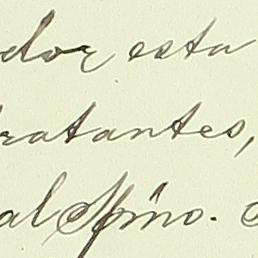 dor esta
ratantes,
al Spino.